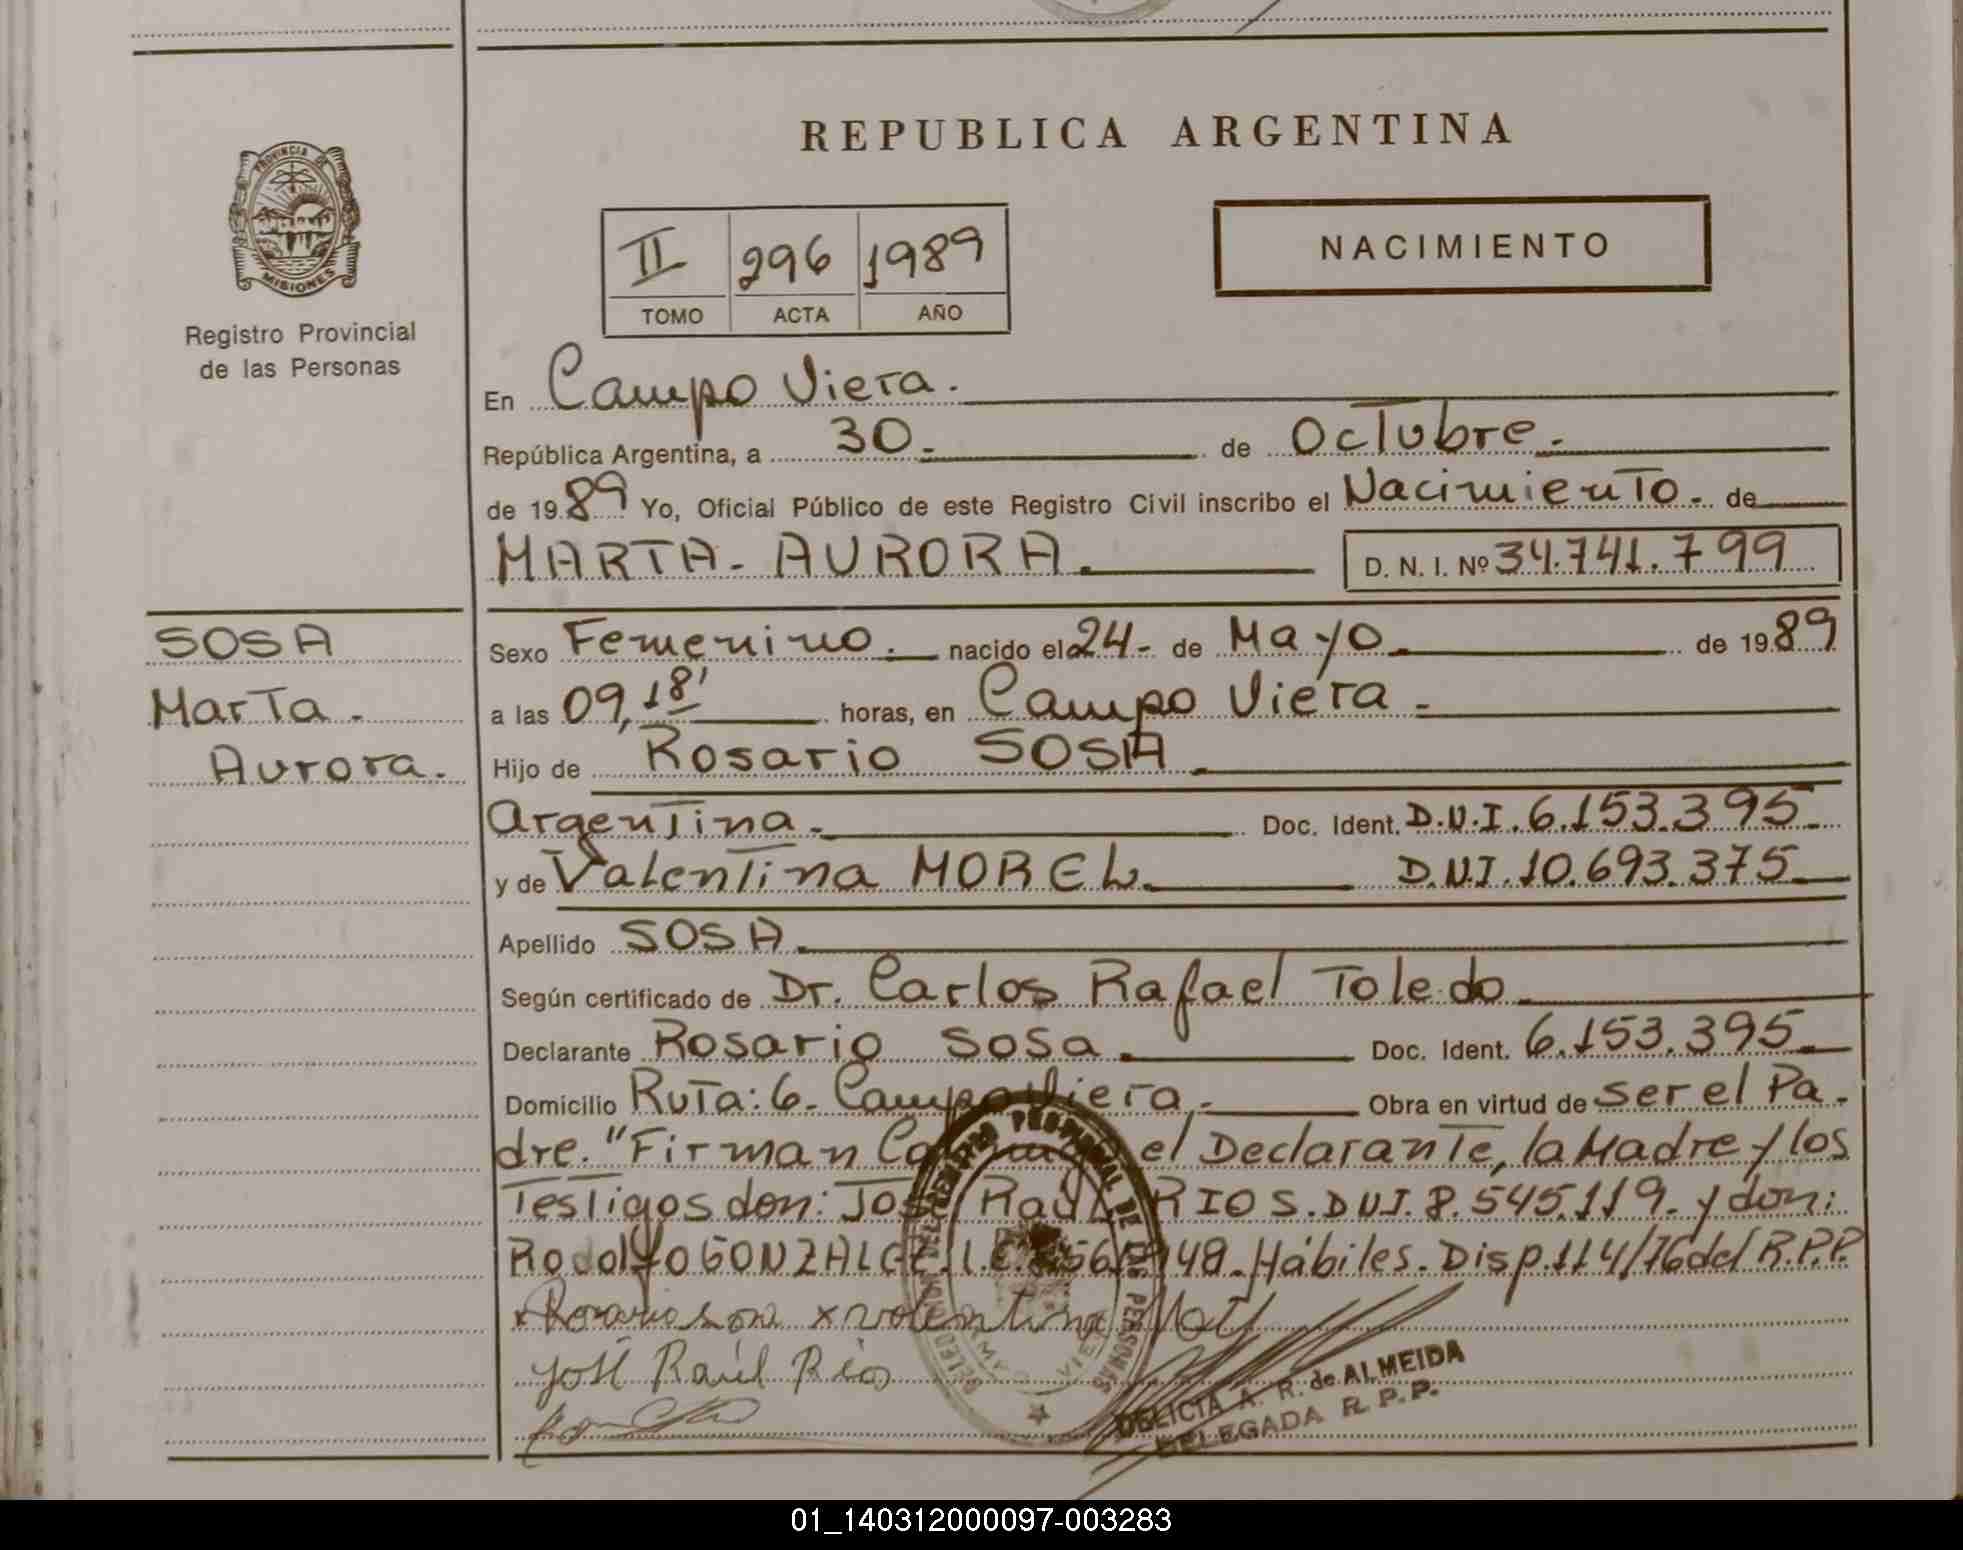 REPUBLICA ARGENTINA
PROVINCIA DE
MISIONES
Registro Provincial
de las Personas
II 296 1989
TOMO ACTA AÑO
NACIMIENTO
En Campo Viera.
República Argentina, a 30. de Octubre.
de 1989 Yo, Oficial Público de este Registro Civil inscribo el Nacimiento. de
MARTA. AURORA. D. N. I. Nº 34.741.799
SOSA
Marta.
Aurora.
Sexo Femenino. nacido el 24. de Mayo. de 1989
a las 09,18' horas, en Campo Viera.
Hijo de Rosario SOSA
Argentina. Doc. Ident. D.N.I. 6.153.395
y de Valentina MOREL. D.N.I. 10.693.375
Apellido SOSA.
Según certificado de Dr. Carlos Rafael Toledo
Declarante Rosario Sosa. Doc. Ident. 6.153.395
Domicilio Ruta: 6. Campo Viera. Obra en virtud de ser el Pa-
dre. "Firman el Declarante, la Madre y los
Testigos don: José Raúl RIOS. DNI. 8.545.119. y don:
Rodolfo GONZALEZ. 148. Hábiles. Disp. 114/76 del R.P.P.
x Rosario sosa x valentina
José Raúl Rios
DELICIA A. R. de ALMEIDA
DELEGADA R. P. P.
01_140312000097-003283